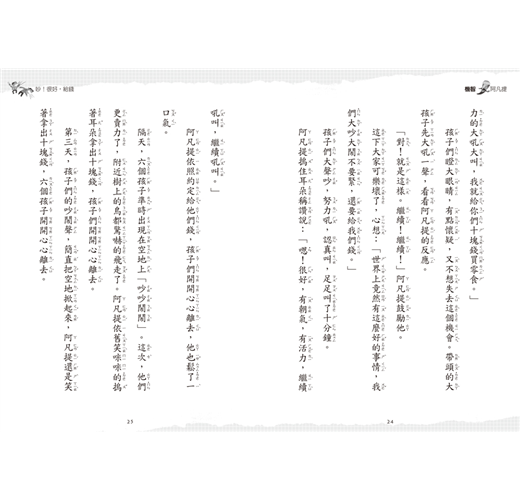 機智 阿凡提
力的大吼大叫，我就給你們十塊錢買零食。」
孩子們瞪大眼睛，有點懷疑，又不想失去這個機會。帶頭的大
孩子先大吼一聲，看看阿凡提的反應。
「對！就是這樣。繼續！繼續！」阿凡提鼓勵他。
這下大家可樂壞了，心想：「世界上竟然有這麼好的事情，我
們大吵大鬧不要緊，還要給我們錢。」
孩子們大聲吵，努力吼，認真叫，足足叫了十分鐘。
阿凡提摀住耳朵稱讚說：「嗯！很好，有朝氣，有活力，繼續
24
吵！很好，給錢
吼叫，繼續吼叫。」
阿凡提依照約定給他們錢，孩子們開開心心離去，他也鬆了一
口氣。
隔天，六個孩子準時出現在空地上「吵吵鬧鬧」。這次，他們
更賣力了，附近樹上的鳥都驚嚇的飛走了。阿凡提依舊笑咪咪的摀
著耳朵拿出十塊錢，孩子們開開心心離去。
第三天，孩子們的吵鬧聲，簡直把空地掀起來，阿凡提還是笑
著拿出十塊錢，六個孩子開開心心離去。
25